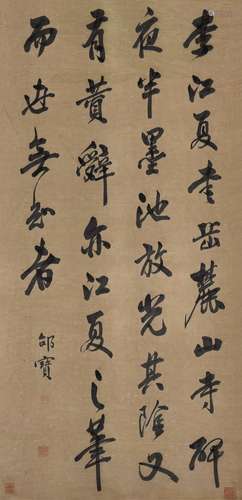 李江夏書岳麓山寺碑
夜半墨池放光其陰又
有賛辭亦江夏之筆
而世無知者
邵寶